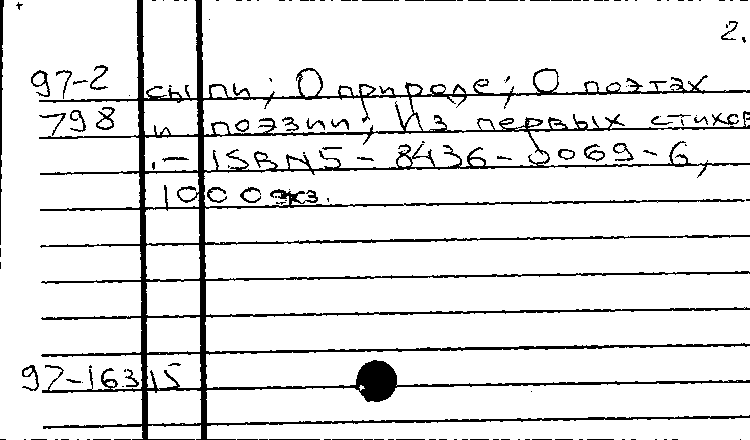 2.
97-2 сыпи; О природе; О поэтах
798 и поэзии; Из первых стихов
.- ISBN5-8436-0069-6,
1000экз.
97-16315